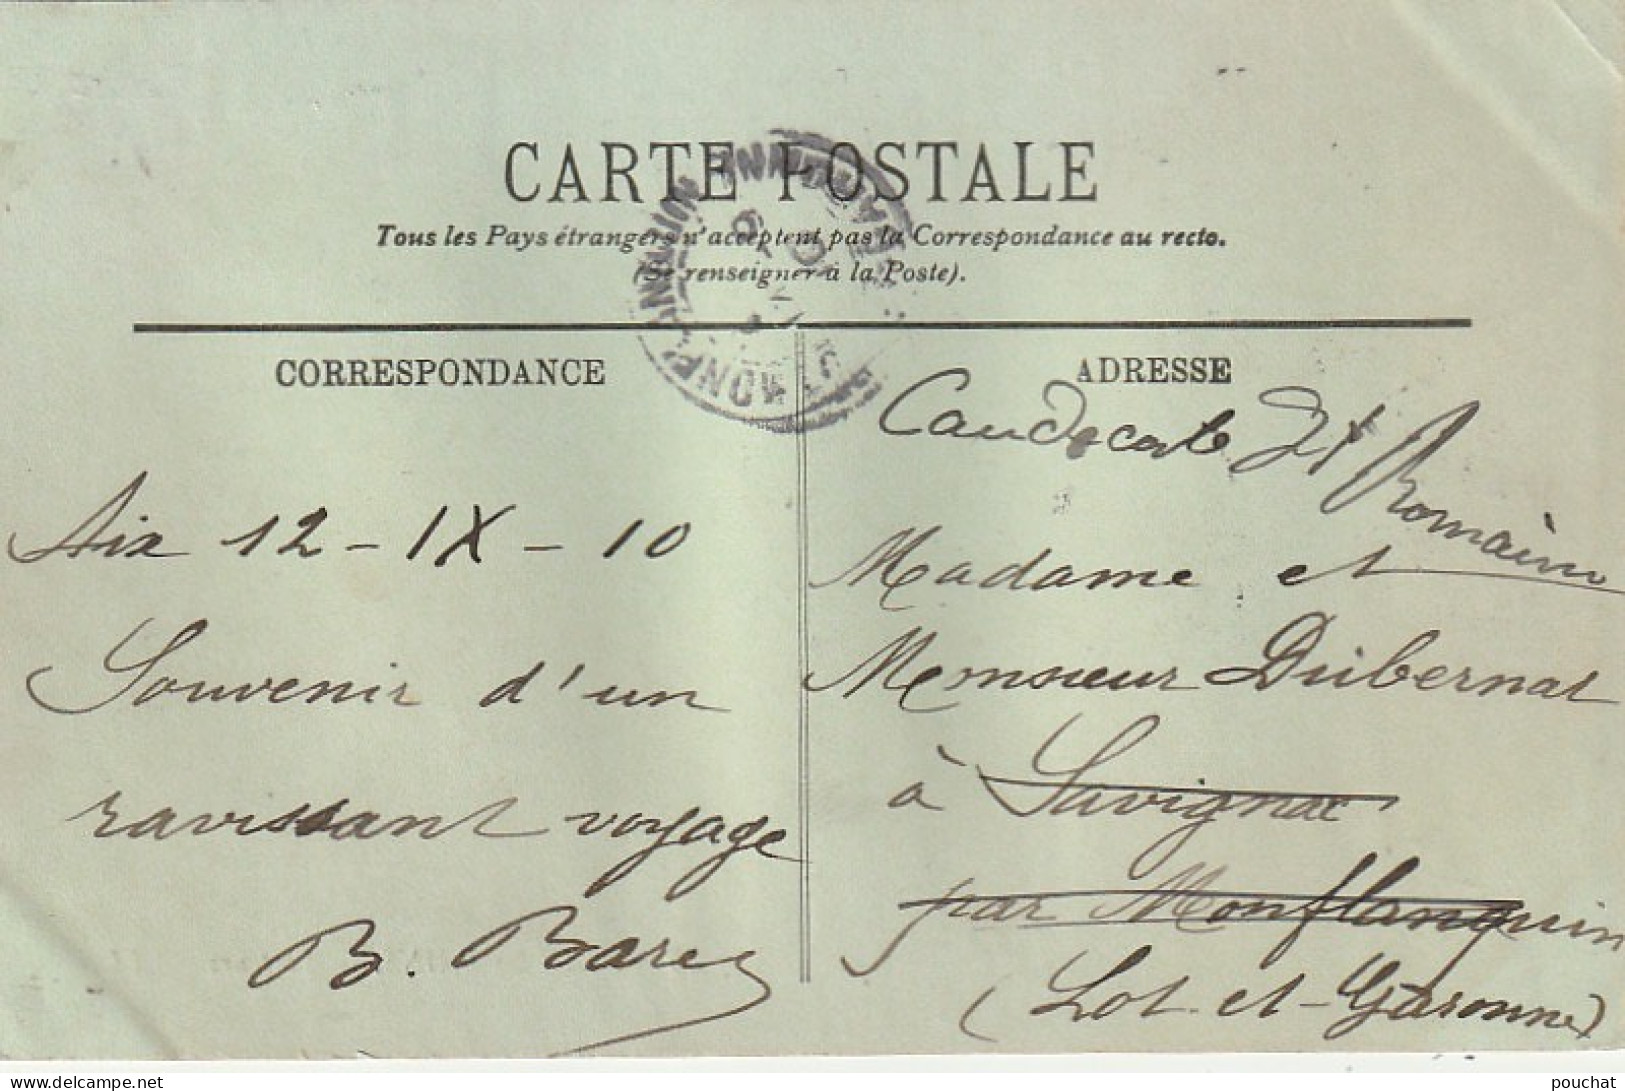 CARTE POSTALE
Tous les Pays étrangers n'acceptent pas la Correspondance au recto.
(Se renseigner à la Poste).
CORRESPONDANCE
Aix 12 - IX - 10
Souvenir d'un
ravissant voyage
B. Barez
ADRESSE
Caudecoste St
Romain
Madame et
Monsieur Dubernat
à Savignac
par Monflanquin
(Lot-et-Garonne)
MONFLANQUIN
delcampe.net
pouchat